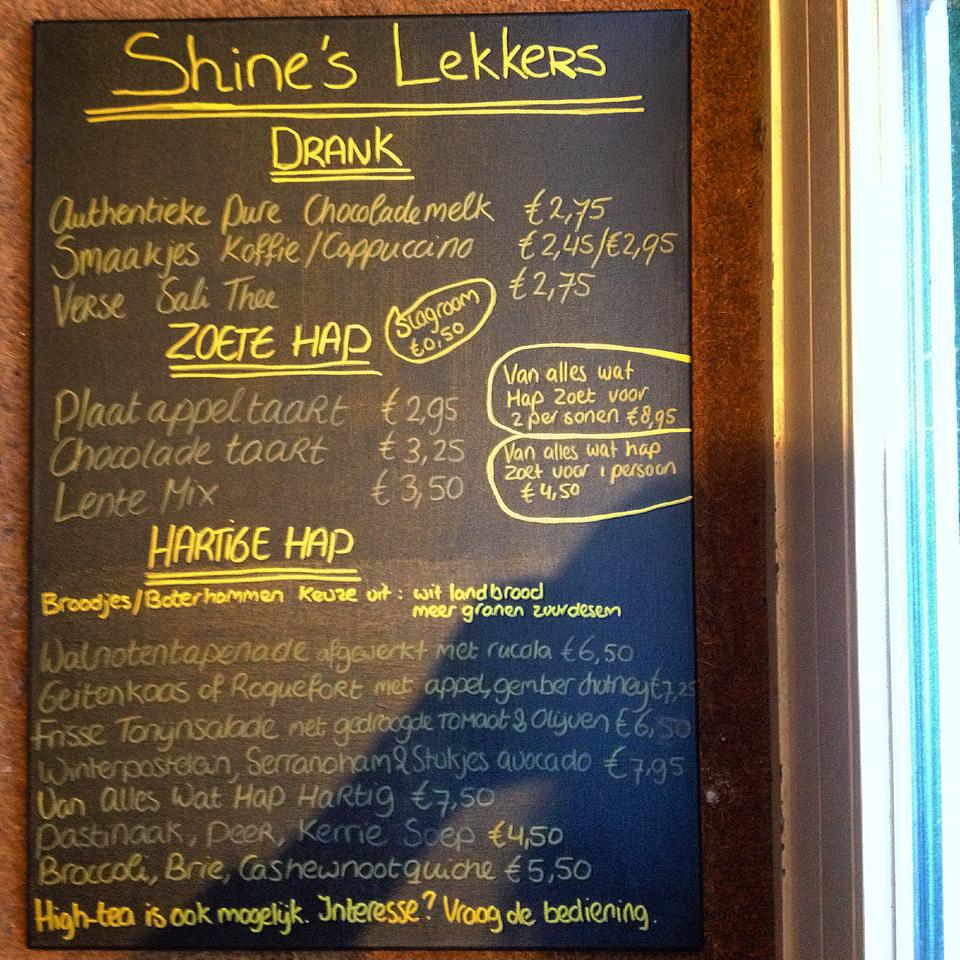 Shine's Lekkers
DRANK
Authentieke Pure Chocolademelk €2,75
Smaakjes Koffie/Cappuccino €2,45/€2,95
Verse Sali Thee €2,75
Slagroom
€0,50
ZOETE HAP
Plaat appeltaart €2,95
Chocolade taart €3,25
Lente Mix €3,50
Van alles wat
Hap Zoet voor
2 personen €8,95
Van alles wat hap
Zoet voor 1 persoon
€4,50
HARTIGE HAP
Broodjes/Boterhammen Keuze uit: wit landbrood
meer granen zuurdesem
Walnotentapenade afgewerkt met rucola €6,50
Geitenkaas of Roquefort met appel, gember chutney €7,25
Frisse Tonijnsalade met gedroogde Tomaat & Olijven €6,50
Serranoham & Stukjes avocado €7,95
Van Alles Wat Hap Hartig €7,50
Pastinaak, Peer, Kerrie Soep €4,50
Broccoli, Brie, Cashewnoot quiche €5,50
High-tea is ook mogelijk. Interesse? Vraag de bediening.